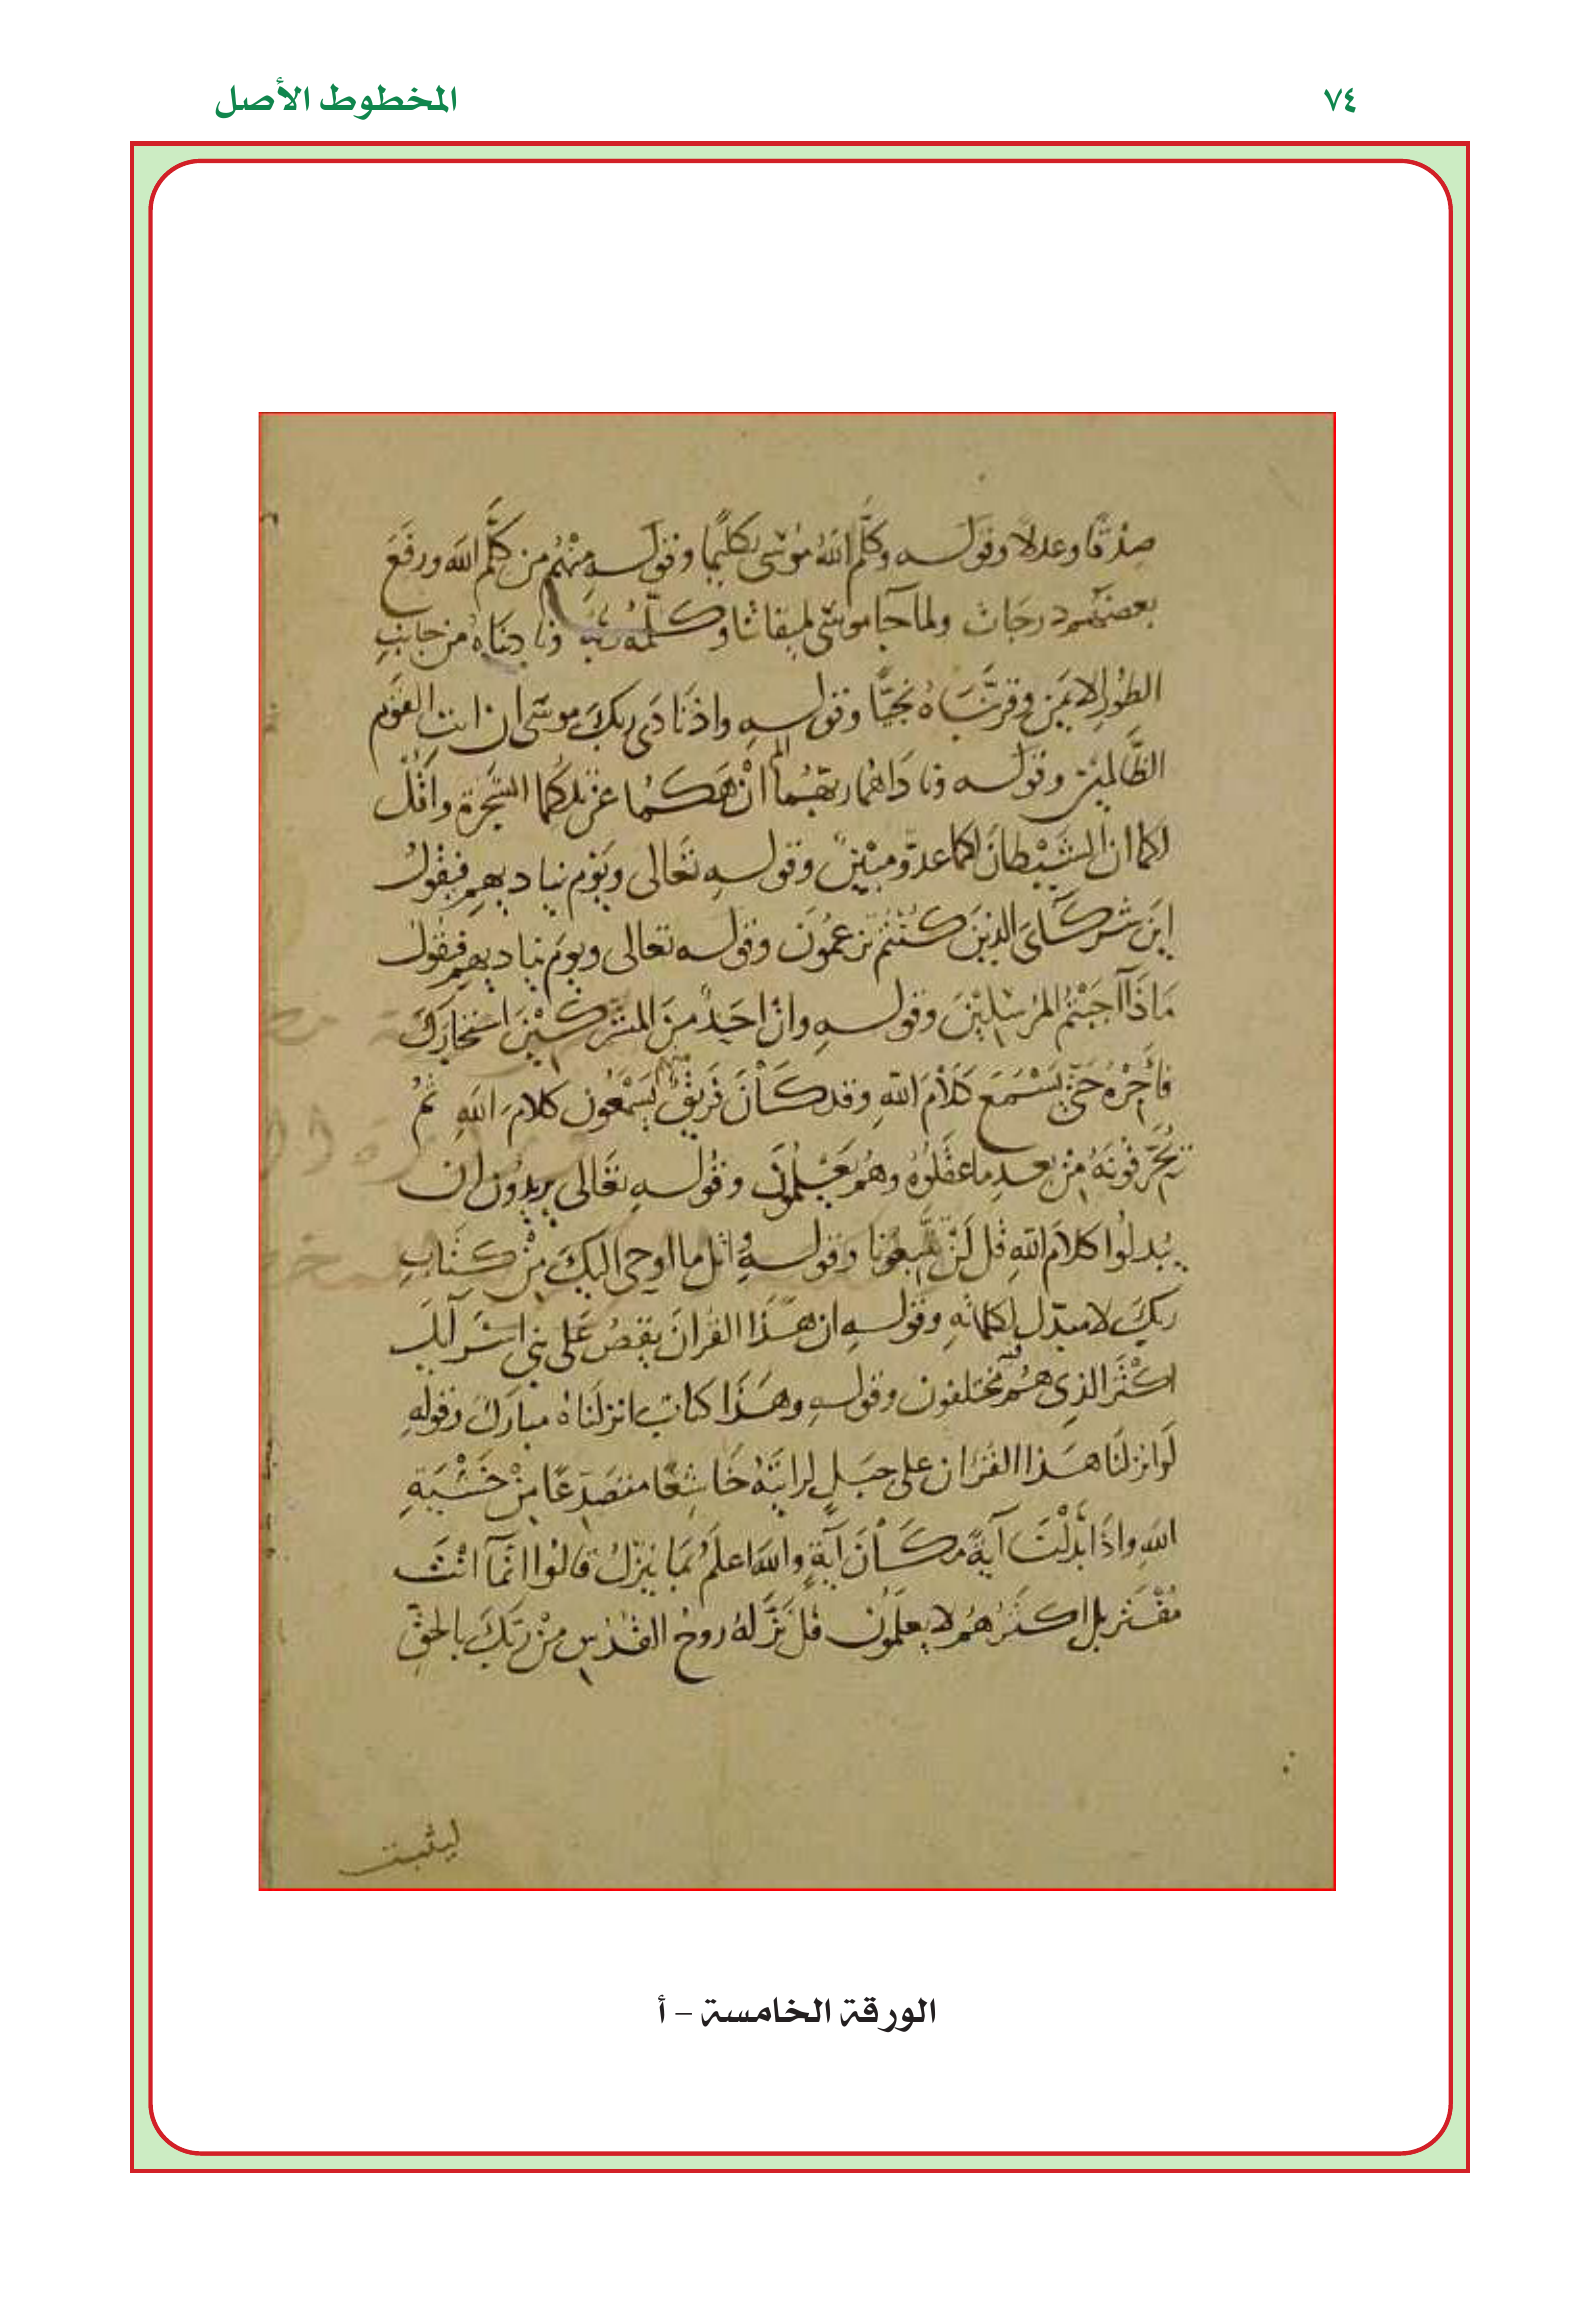 المخطوط الأصل ٧٤
صِدْقًا وعدلًا وقوله وكلَّم اللهُ مُوسَى تكليمًا وقوله مِنْهُم من كلَّم الله ورفعَ
بعضهم درجات ولما جا موسى لميقاتنا وكلَّمهُ ربّهُ وناديناهُ من جانبِ
الطُورِ الايمَنِ وقرَّبنَاهُ نجيًّا وقولهِ واذ نَادَى ربكَ موسَى ان ائتِ القَوْمَ
الظَّالمينَ وقوله وناداهُما ربّهُما الم انْهَكُما عن تلكُما الشجَرة واقُلْ
لكما ان الشَّيْطانَ لكما عدوّ مبينٌ وقولهِ تعَالى ويَوْم يناديهِم فيقُولُ
اينَ شركآىَ الذينَ كُنْتُم تزعمُونَ وقوله تعالى ويومَ يناديهِم فيقُولُ
مَاذَا اجَبْتُم المُرسَلينَ وقولهِ وانْ احَدٌ منَ المشركينَ استجارَكَ
فأجِرْهُ حَتَّى يَسْمَعَ كَلامَ اللهِ وقد كَانَ فَريقٌ منهم يَسْمَعُون كلامَ اللهِ ثمُ
يُحَرّفونَهُ مِنْ بعدِ ما عقَلُوهُ وهُم يَعْلمُونَ وقولهِ تعَالى يريدُون ان
يُبدلُوا كلامَ اللهِ قُل لَنْ تتّبعُونا وقولهِ واتلُ ما اوحى اليكَ مِنْ كتَابِ
ربكَ لا مبدّل لكلماتهِ وقولهِ ان هَذا القرانَ يقصُ عَلى بني اسْرَآيلَ
اكْثَر الذِى هُمْ فيه مختلفون وقولهِ وهَذَا كتابٌ انزلنَاهُ مبارَكٌ وقولهِ
لَو انزلنَا هَذا القران على جبَلٍ لرايتَهُ خَاشِعًا متصَدّعًا مِنْ خَشْيَةِ
اللهِ واذَا بَدلْنَا آيةً مكَانَ آيةٍ والله اعلَمُ بمَا ينزلُ قالوُا انَّمآ انْتَ
مُفْترٍ بل اكثرهُم لا يعلَمُون قُل نَزَّلهُ روحُ القُدُسِ مِنْ ربّكَ بالحقِّ
ليثبت
الورقة الخامسة – أ